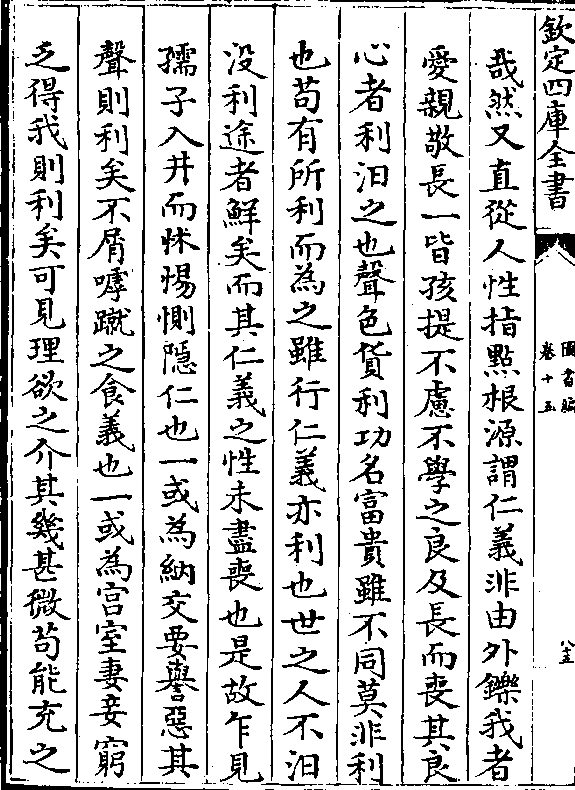 欽定四庫全書
圖書編
卷十五
八五
哉然又直從人性指點根源謂仁義非由外鑠我者
愛親敬長一皆孩提不慮不學之良及長而喪其良
心者利汨之也聲色貨利功名富貴雖不同莫非利
也苟有所利而為之雖行仁義亦利也世之人不汨
没利途者鮮矣而其仁義之性未盡喪也是故乍見
孺子入井而怵惕惻隱仁也一或為納交要譽惡其
聲則利矣不屑嘑蹴之食義也一或為宮室妻妾窮
乏得我則利矣可見理欲之介其幾甚微苟能充之